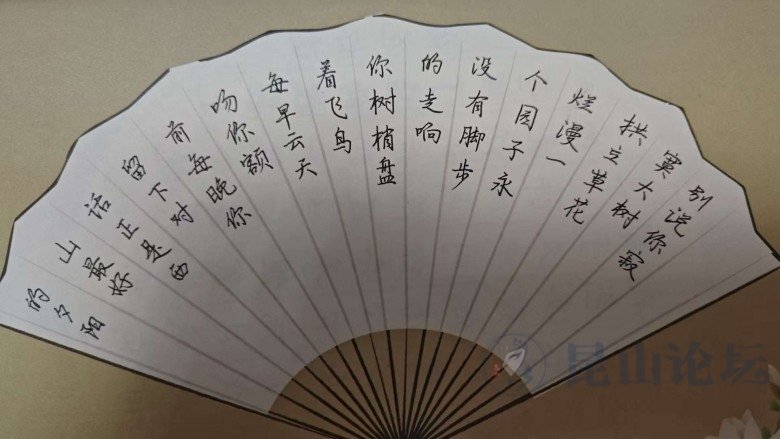 别说你寂
寞大树
拱立草花
烂漫一
个园子永
没有脚步
的走响
你树梢盘
着飞鸟
每早云天
吻你额
前每晚你
留下对
话正是西
山最好
的夕阳
昆山论坛